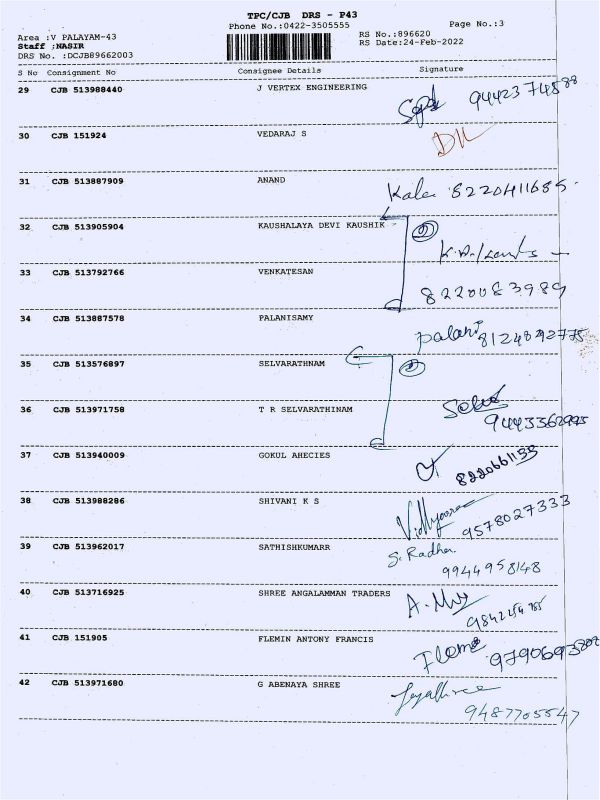 TPC/CJB DRS - P43
Phone No.:0422-3505555
Page No.:3
Area :V PALAYAM-43
RS No.:896620
Staff ;NASIR
RS Date:24-Feb-2022
DRS No. :DCJB89662003
S No Consignment No Consignee Details Signature
29 CJB 513988440 J VERTEX ENGINEERING
30 CJB 151924 VEDARAJ S
31 CJB 513887909 ANAND Kala 8220411685
32 CJB 513905904 KAUSHALAYA DEVI KAUSHIK
33 CJB 513792766 VENKATESAN
8220083989
34 CJB 513887578 PALANISAMY
Palani
35 CJB 513576897 SELVARATHNAM
36 CJB 513971758 T R SELVARATHINAM
37 CJB 513940009 GOKUL AHECIES
8220661133
38 CJB 513988286 SHIVANI K S
9578027333
39 CJB 513962017 SATHISHKUMARR S. Radha
9944958148
40 CJB 513716925 SHREE ANGALAMMAN TRADERS
41 CJB 151905 FLEMIN ANTONY FRANCIS
42 CJB 513971680 G ABENAYA SHREE
9487705547